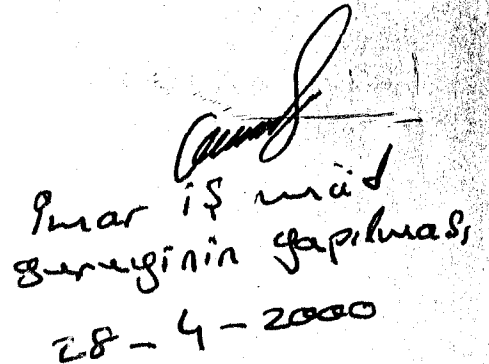 İmar iş müd
gereğinin yapılması
28-4-2000